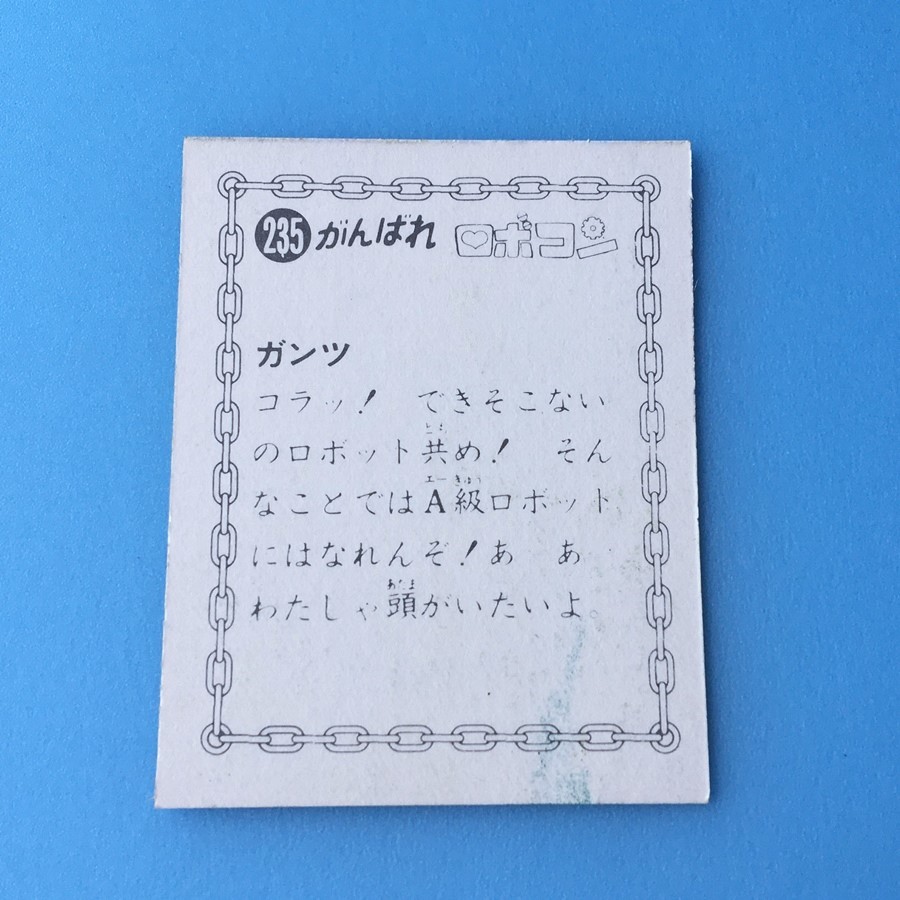 235 がんばれ ロボコン
ガンツ
コラッ! できそこない
のロボット共め! そん
なことではA級ロボット
にはなれんぞ!あ あ
わたしゃ頭がいたいよ。